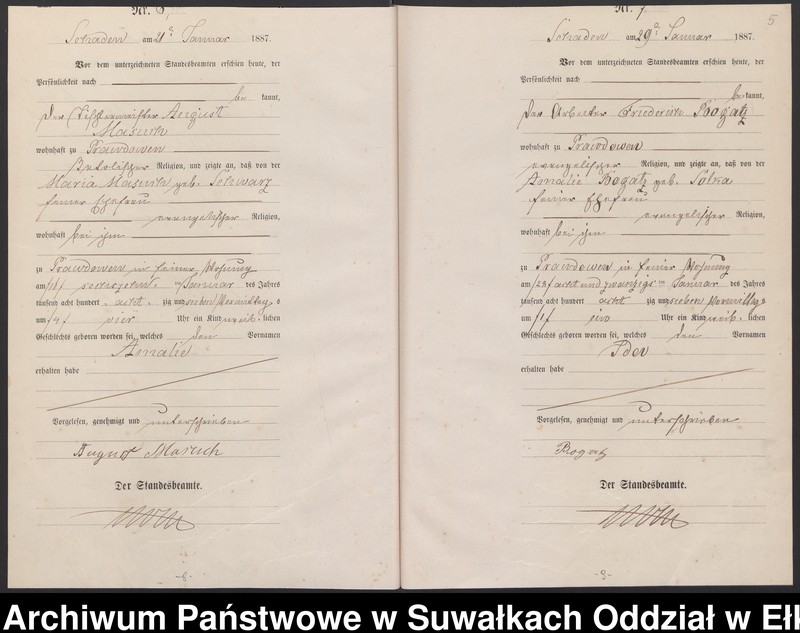 Nr. 6.
Schaden am 21ᵗ Januar 1887.
Vor dem unterzeichneten Standesbeamten erschien heute, der
Persönlichkeit nach
be kannt,
der August
Masuch
wohnhaft zu Prawdowen
Religion, und zeigte an, daß von der
Maria Masuch geb. Schwarz
seiner Ehefrau
evangelischer Religion,
wohnhaft bei ihm
zu Prawdowen in seiner Wohnung
am Januar des Jahres
tausend acht hundert acht zig und sieben Vormittag s
um /4/ vier Uhr ein Kind weib lichen
Geschlechts geboren worden sei, welches den Vornamen
Amalie
erhalten habe
Vorgelesen, genehmigt und unterschrieben
August Masuch
Der Standesbeamte.
-6-
Nr. 7
5
Schaden am 29ᵗ Januar 1887.
Vor dem unterzeichneten Standesbeamten erschien heute, der
Persönlichkeit nach
be kannt,
der Arbeiter Friedrich Rogatz
wohnhaft zu Prawdowen
evangelischer Religion, und zeigte an, daß von der
Amalie Rogatz geb. Solka
seiner Ehefrau
evangelischer Religion,
wohnhaft bei ihm
zu Prawdowen in seiner Wohnung
am /28/ acht und zwanzigs ten Januar des Jahres
tausend acht hundert acht zig und sieben Vormittag s
um /1/ Uhr ein Kind weib lichen
Geschlechts geboren worden sei, welches den Vornamen
erhalten habe
Vorgelesen, genehmigt und unterschrieben
Rogatz
Der Standesbeamte.
Archiwum Państwowe w Suwałkach Oddział w Ełk